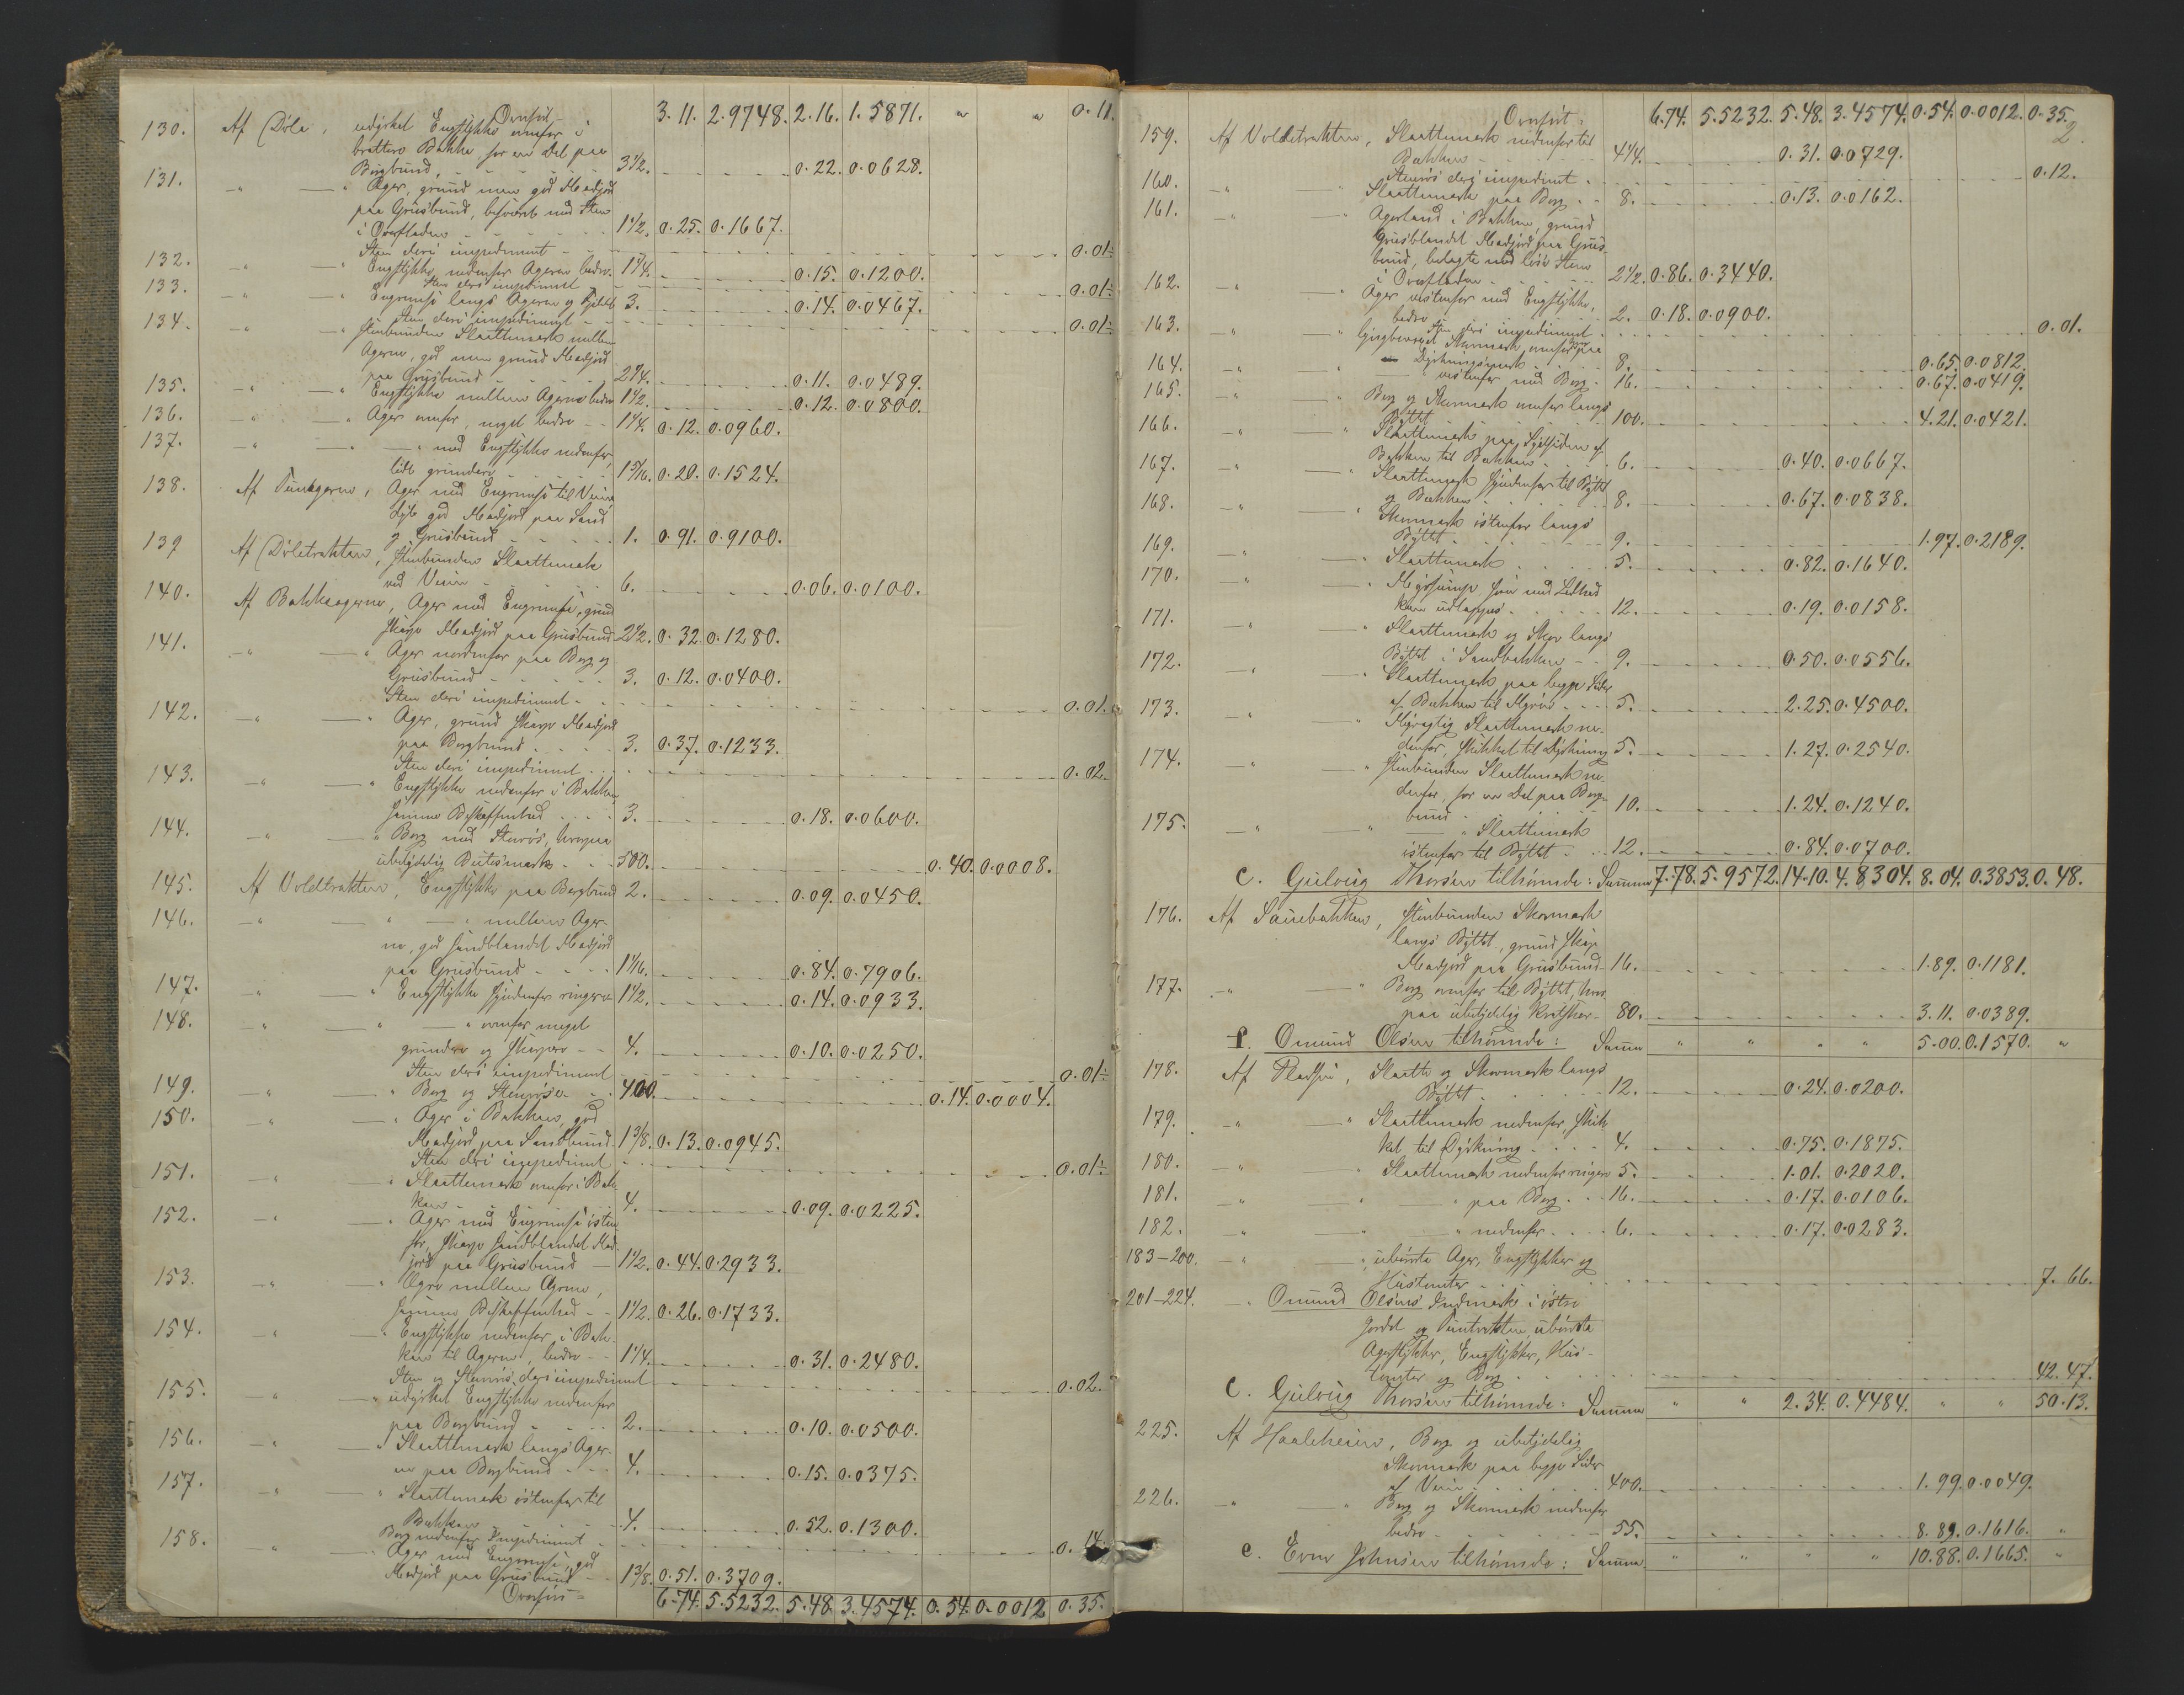 Overført 3.11. 2.9748. 2.16. 1.5871. " " 0.11.
130. Af Döla, udyrket Engstykke ovenfor i
brattere Bakke for en Del paa
Bergbund, 3 1/2. 0.22. 0.0628.
131. " " Ager, grund men god Madjord
paa Grusbund, besværet med Sten
i Overfladen 1 1/2. 0.25. 0.1667.
Sten deri impediment 0.01
132. " " Engstykke nedenfor Agerne bedre 1 1/4. 0.15. 0.1200.
Sten deri impediment 0.01
133. " " Engremse langs Agerne og 3. 0.14. 0.0467.
Sten deri impediment 0.01
134. " " Stenbunden Slaattemark mellem
Agerne, god men grund Madjord
paa Grusbund 2 1/4. 0.11. 0.0489.
135. " " Engstykke mellem Agerne bedre 1 1/2. 0.12. 0.0800.
136. " " Ager ovenfor, noget bedre 1 1/4. 0.12. 0.0960.
137. " " " med Engstykke nedenfor,
lidt grundere 1 5/16. 0.20. 0.1524.
138. Af Tunagerne, Ager med Engremse til Veien
dyb god Madjord paa Sand
og Grusbund 1. 0.91. 0.9100.
139 Af Döletrakten, Stenbunden Slaattemark
ved Veien 6. 0.06. 0.0100.
140. Af Bakkeagerne, Ager med Engremse, grund
skarp Madjord paa Grusbund 2 1/2. 0.32. 0.1280.
141. " " Ager nordenfor paa Berg og
Grusbund 3. 0.12. 0.0400.
Sten deri impediment 0.01.
142. " " Ager, grund skarp Madjord
paa Bergbund 3. 0.37. 0.1233.
Sten deri impediment 0.02.
143. " " Engstykke nedenfor i Bakken,
samme Beskaffenhed 3. 0.18. 0.0600.
144. " " Berg med Stenrös, hvorpaa
ubetydelig Beitesmark 500. 0.40. 0.0008.
145. Af Voldtrakten, Engstykke paa Bergbund 2. 0.09. 0.0450.
146. " " " mellem Ager-
ne, god sandblandet Madjord
paa Grusbund 1 1/16. 0.84. 0.7906.
147. " " Engstykke söndenfor ringere 1 1/2. 0.14. 0.0933.
148. " " " ovenfor meget
grundere og skarpere 4. 0.10. 0.0250.
Sten deri impediment 0.01
149. " " Berg og Stenröser 400. 0.14. 0.0004.
150. " " Ager i Bakken, god
Madjord paa Sandbund 1 3/8. 0.13. 0.0945.
Sten deri impediment 0.01
151. " " Slaattemark ovenfor i Bak-
ken 4. 0.09. 0.0225.
152. " " Ager med Engremse östen-
for, skarp sandblandet Mad-
jord paa Grusbund 1 1/2. 0.44. 0.2933.
153. " " Agre mellem Agrene,
samme Beskaffenhed 1 1/2. 0.26. 0.1733.
154. " " Engstykke nedenfor i Bak-
ken til Agerne, bedre 1 1/4. 0.31. 0.2480.
Sten og Stenrös deri impediment 0.02.
155. " " udyrket Engstykke nedenfor
paa Bergbund 2. 0.10. 0.0500.
156. " " Slaattemark langs Ager-
en paa Bergbund 4. 0.15. 0.0375.
157. " " Slaattemark östenfor til
Bakken 4. 0.52. 0.1300.
Berg nedenfor Impediment 0.14
158. " " Ager med Engremse, god
Madjord paa Grusbund 1 3/8. 0.51. 0.3709.
Overføres 6.74. 5.5232. 5.48. 3.4574. 0.54. 0.0012 0.35.
Overført 6.74. 5.5232. 5.48. 3.4574. 0.54. 0.0012. 0.35.
2
159. Af Voldetrakten, Slaattemark nedenfor til
Bakken 4 1/4. 0.31. 0.0729.
Stenrös deri impediment 0.12.
160. " " Slaattemark paa Berg 8. 0.13. 0.0162.
161. " " Agerland i Bakken, grund
grusblandet Madjord paa Grus-
bund, belagte med löse Stene
i Overfladen 2 1/2. 0.86. 0.3440.
162. " " Ager vestenfor med Engstykke,
bedre 2. 0.18. 0.0900.
Sten deri impediment 0.01.
163. " " Skovmark ovenfor paa
Dyrkningsmark 8. 0.65. 0.0812.
164. " " " vestenfor med Berg 16. 0.67. 0.0419.
165. " " Berg og Skovmark ovenfor langs
Byttet 100. 4.21. 0.0421.
166. " " Slaattemark paa Sydsiden af
Bakken til Bækken 6. 0.40. 0.0667.
167. " " Slaattemark söndenfor til Byttet
og Bækken 8. 0.67. 0.0838.
168. " " Skovmark östenfor langs
Byttet 9. 1.97. 0.2189.
169. " " Slaattemark 5. 0.82. 0.1640.
170. " " Myrsump som med Lethed
kan udtappes 12. 0.19. 0.0158.
171. " " Slaattemark og Skov langs
Byttet i Sandbakken 9. 0.50. 0.0556.
172. " " Slaattemark paa begge Sider
af Bækken til Myrös 5. 2.25. 0.4500.
173. " " Myragtig Slaattemark ne-
denfor, skikket til Dyrkning 5. 1.27. 0.2540.
174. " " Stenbunden Slaattemark ne-
denfor, for en Del paa Berg-
bund 10. 1.24. 0.1240.
175. " " " Slaattemark
östenfor til Byttet 12. 0.84. 0.0700.
C. Gulvig Thorsen tilhörende: Summa 7.78. 5.9572. 14.10. 4.8304. 8.04. 0.3853. 0.48.
176. Af Sauebakken, Stenbunden Skovmark
langs Byttet, grund skarp
Madjord paa Grusbund 16. 1.89. 0.1181.
177. " " Berg ovenfor til Byttet, hvor-
paa ubetydelig Kratskov 80. 3.11. 0.0389.
f. Omund Olsen tilhörende: Summa " " " " 5.00. 0.1570. "
178. Af Pladsen, Slaatte og Skovmark langs
Byttet 12. 0.24. 0.0200.
179. " " Slaattemark nedenfor, skik-
ket til Dyrkning 4. 0.75. 0.1875.
180. " " Slaattemark nedenfor ringere 5. 1.01. 0.2020.
181. " " " paa Berg 16. 0.17. 0.0106.
182. " " " nedenfor 6. 0.17. 0.0283.
183–200. " " ubörste Ager, Engstykker og
Hustomter 7.66.
201–224. " Omund Olsens Indmark i östre
Jordet og Tuntrakten ubörste
Agerstykker, Engstykker, Hus-
tomter og Berg 42.47.
C. Gulvig Thorsen tilhörende: Summa " " 2.34. 0.4484. " " 50.13.
225. Af Haaleheien, Berg og ubetydelig
Skovmark paa begge Sider
af Veien 400. 1.99. 0.0049.
226. " " Berg og Skovmark nedenfor
bedre 55. 8.89. 0.1616. "
e. Even Johnsen tilhörende: Summa " " " " 10.88. 0.1665. "